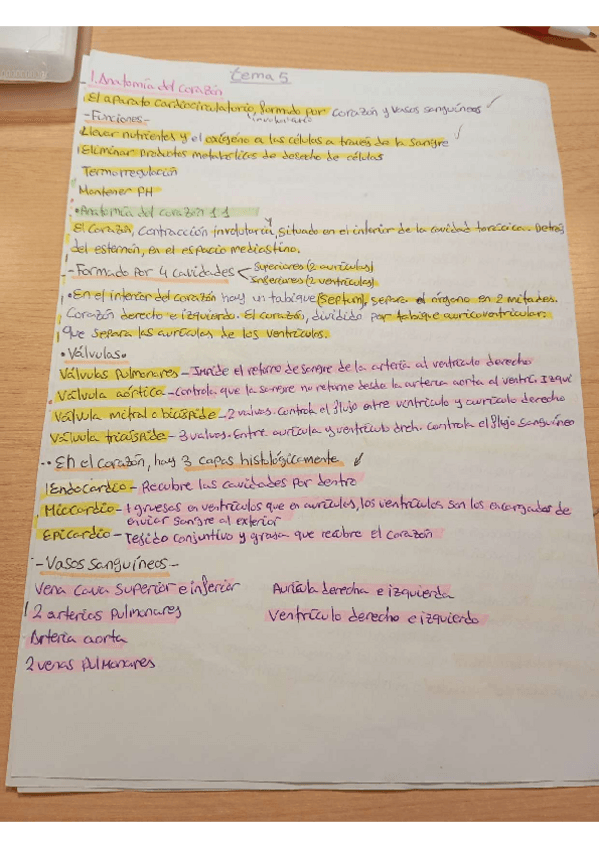 tema 5
1. Anatomía del corazón
El aparato cardiocirculatorio, formado por corazón y vasos sanguíneos ✓
-Funciones-
involuntario
Llevar nutrientes y el oxígeno a las células a través de la sangre
Eliminar productos metabólicos de desecho de células
Termorregulación
Mantener PH
•Anatomía del corazón 1.1
El corazón, contracción involutaria, y situado en el interior de la cavidad torácica. Detrás
del esternón, en el espacio mediastino.
-Formado por 4 cavidades < Superiores (2 aurículas)
Inferiores (2 ventrículos)
•En el interior del corazón hay un tabique (Septum), separa el órgano en 2 mitades.
Corazón derecho e izquierdo. El corazón, dividido por tabique auricoventricular.
que separa las aurículas de los ventrículos.
•Válvulas•
Válvulas pulmonares - Impide el retorno de sangre de la arteria al ventrículo derecho
Válvula aórtica - Controla que la sangre no retorne desde la arteria aorta al ventri. Izqui
Válvula mitral o bicúspide - 2 valvas. Control el flujo entre ventrículo y aurículo derecho
Válvula tricúspide - 3 valvas. Entre aurícula y ventrículo drch. controla el flujo sanguíneo
•• En el corazón, hay 3 capas histológicamente ✓
Endocardio - Recubre las cavidades por dentro
Miocardio - 1 gruesas en ventrículos que en aurículas, los ventrículos son los encargados de
enviar sangre al exterior
Epicardio - Tejido conjuntivo y grasa que recubre el corazón
-Vasos sanguíneos-
Vena cava superior e inferior Aurícula derecha e izquierda
2 arterias pulmonares Ventrículo derecho e izquierdo
Arteria aorta
2 venas pulmonares